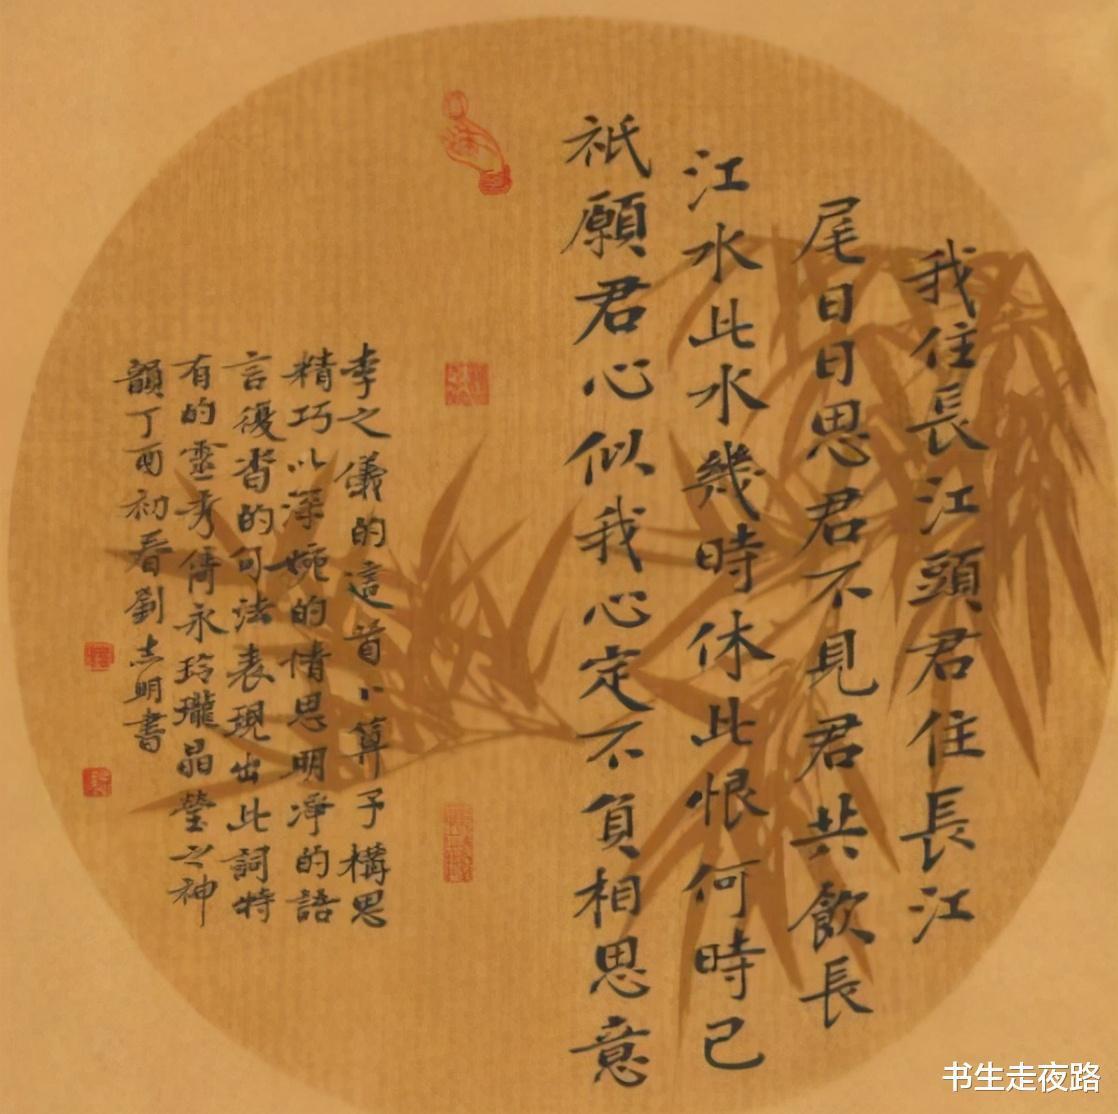 我住長江頭君住長江
尾日日思君不見君共飲長
江水此水幾時休此恨何時已
祇願君心似我心定不負相思意
李之儀的這首卜算子構思
精巧以深婉的情思明淨的語
言復沓的句法表現出此詞特
有的靈秀雋永玲瓏晶瑩之神
韻丁酉初春劉志明書
书生走夜路